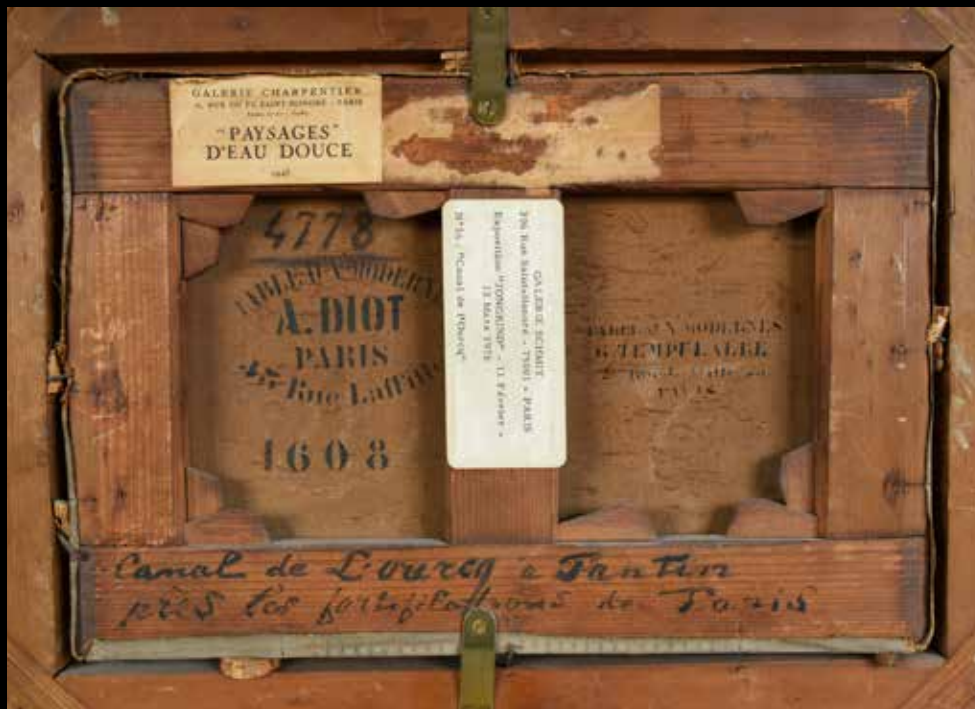 GALERIE CHARPENTIER
RUE DU FG SAINT-HONORÉ - PARIS
"PAYSAGES"
D'EAU DOUCE
4778
TABLEAUX MODERNES
A. DIOT
PARIS
43 Rue Laffitte
1608
GALERIE SCHMIT
396 Rue Saint-Honoré - 75001 - PARIS
Exposition "JONGKIND" - 11 Février -
13 Mars
"Canal de l'Ourcq"
TABLEAUX MODERNES
G. TEMPELAERE
PARIS
Canal de L'ourcq a Pantin
près les fortifications de Paris